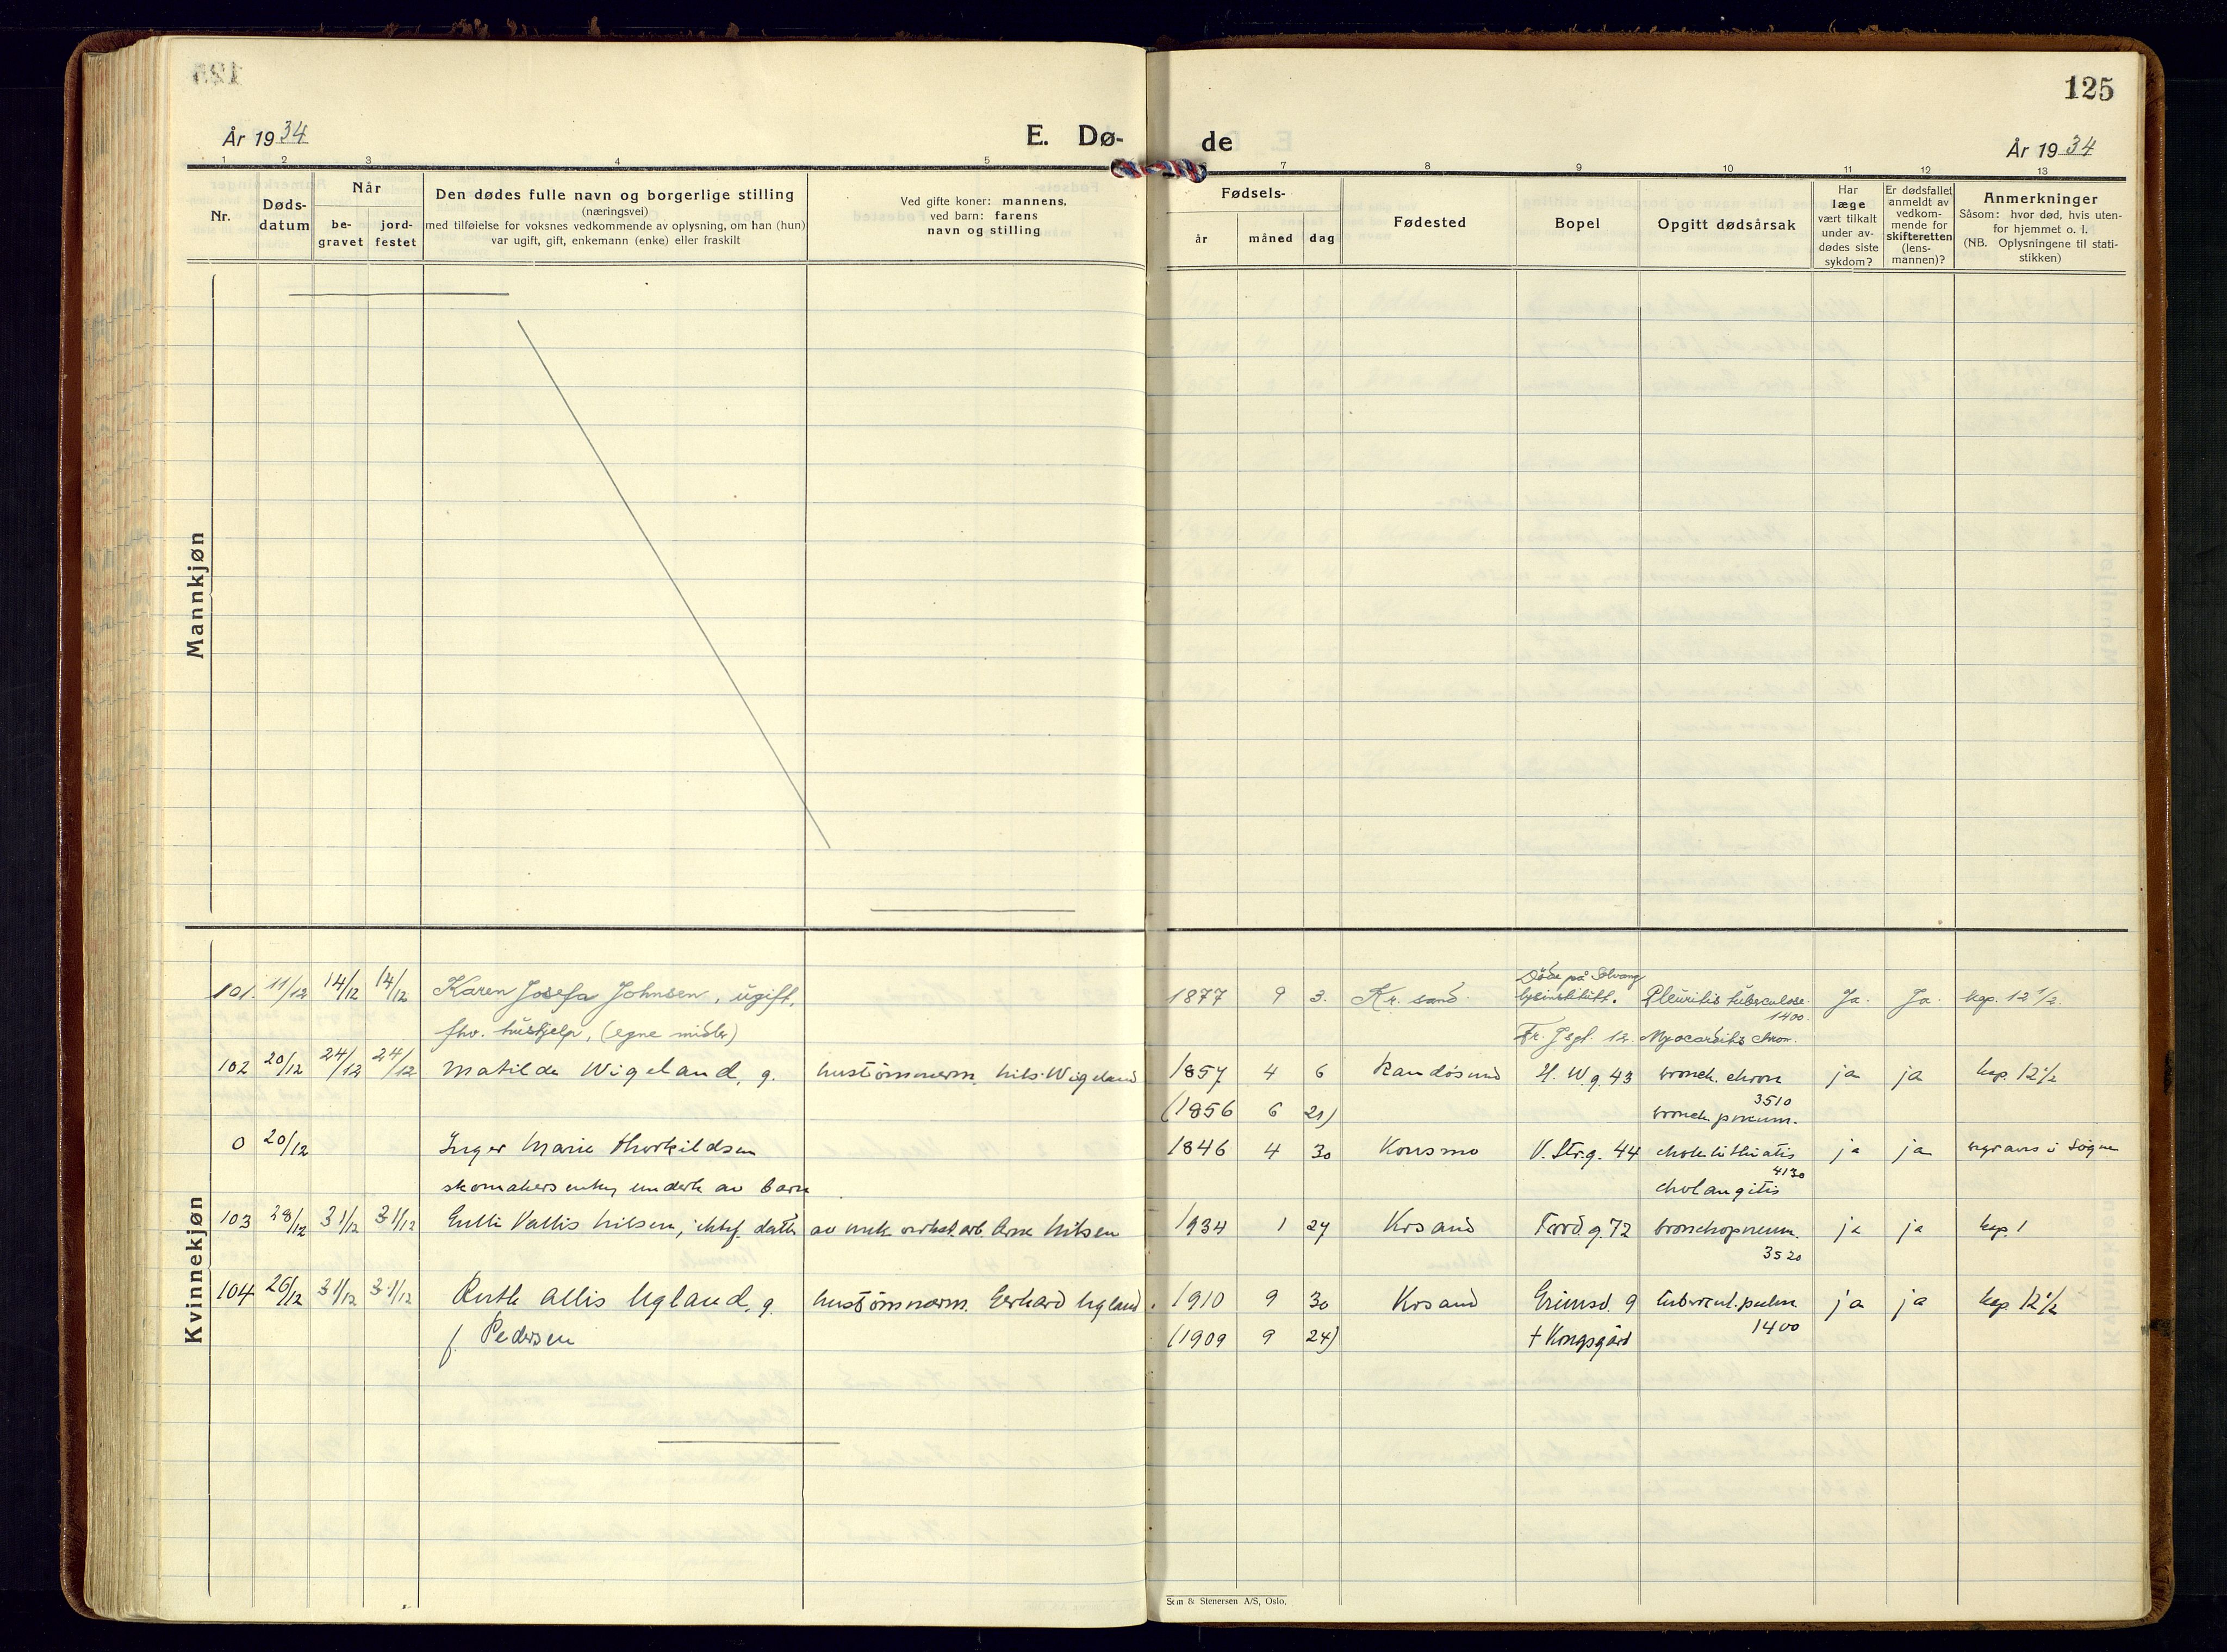 125
År 1934
E. Dø-
de
År 1934
1 2 3 4 5 7 8 9 10 11 12 13
Nr.
Døds-
datum
Når
be-
gravet
jord-
festet
Den dødes fulle navn og borgerlige stilling
(næringsvei)
med tilføielse for voksnes vedkommende av oplysning, om han (hun)
var ugift, gift, enkemann (enke) eller fraskilt
Ved gifte koner: mannens,
ved barn: farens
navn og stilling
Fødsels-
år måned dag
Fødested
Bopel
Opgitt dødsårsak
Har
læge
vært tilkalt
under av-
dødes siste
sykdom?
Er dødsfallet
anmeldt av
vedkom-
mende for
skifteretten
(lens-
mannen)?
Anmerkninger
Såsom: hvor død, hvis uten-
for hjemmet o. l.
(NB. Oplysningene til stati-
stikken)
Mannkjøn
Kvinnekjøn
Døde på Solvang
101. 11/12 14/12 14/12 Karen Josefa Johnsen, ugift, 1877 9 3. Kr. sand. Pleuritis tuberculose. Ja. Ja. kap. 12 1/2.
1400.
fhv. hushjelp, (egne midler) 12. Myocarditis chron.
102 20/12 24/12 24/12 Matilde Wigeland, g. hustømmerm. Nils Wigeland 1857 4 6 Randøsund H. W. g. 43 bronch. chron ja ja kap. 12 1/2
(1856 6 21) 3510
bronch. pneum.
0 20/12 Inger Marie Thorkildsen 1846 4 30 Konsmo V. Str.g. 44 ja ja begraves i Søgne
4130
skomakers enke, underh. av barn cholangitis
103 28/12 31/12 31/12 Vallis Nilsen, datter av mek. Arne Nilsen 1934 1 27 Krsand 72 bronchopneum. ja ja kap. 1
3520
104 26/12 31/12 31/12 Ruth Allis Ugland, g. hustømmerm. Gerhard Ugland. 1910 9 30 Krsand 9 ja ja kap. 12 1/2
f. Pedersen (1909 9 24) † Kongsgård 1400
Sem & Stenersen A/S, Oslo.